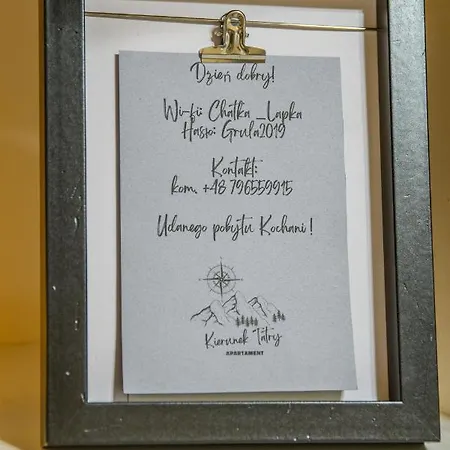 Dzień dobry!
Wi-fi: Chatka_Lapka
Hasło: Grula2019
Kontakt:
kom. +48 796559915
Udanego pobytu Kochani!
Kierunek Tatry
APARTAMENT